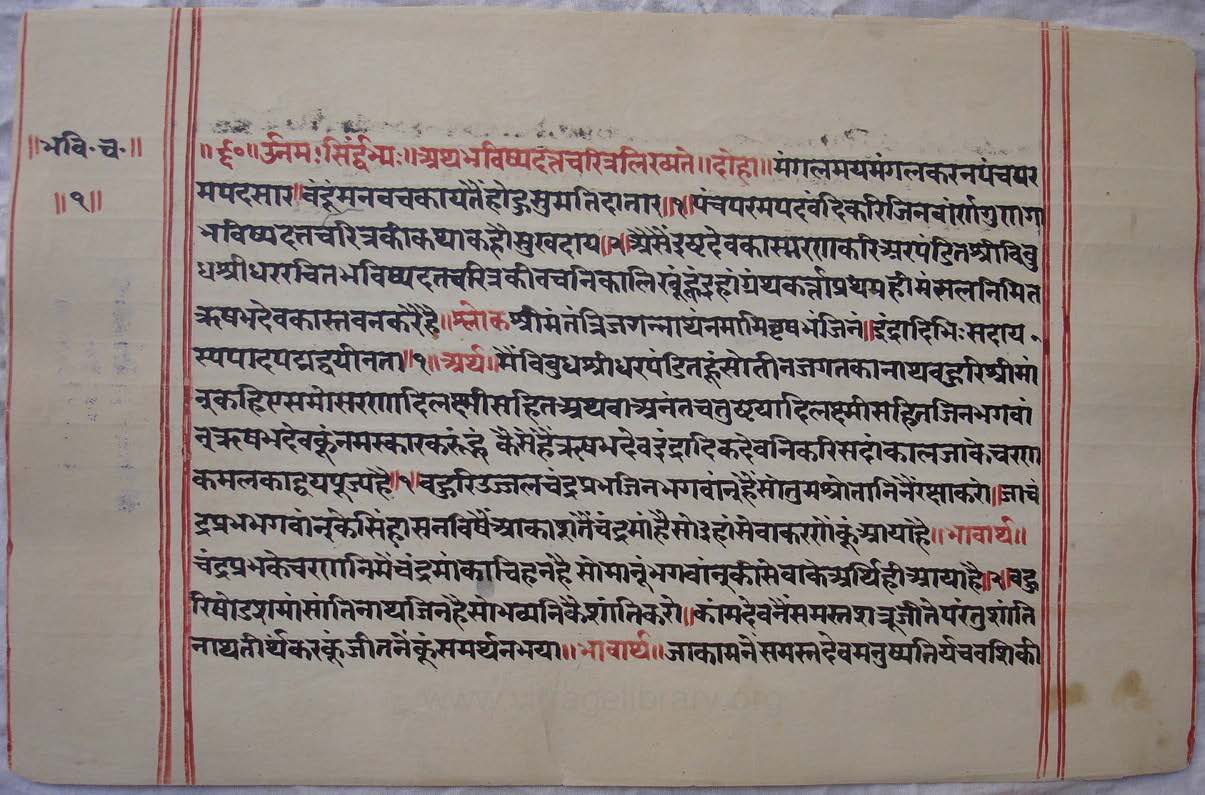 ॥भवि॰च॰॥
॥१॥
॥र्द्द॰॥उँनमःसिद्धेभ्यः॥अथभविष्यदत्तचरित्रलिख्यते॥दोहा॥मंगलमयमंगलकरनपंचपर
मपदसार॥वंदूंमनवचकायतैंहोहुसुमतिदातार॥१॥पंचपरमपदवंदिकरिजिनवांणीगुणगा
भविष्यदत्तचरित्रकीकथाकहौंसुखदाय॥२॥अैसैंइष्टदेवकास्मरणकरिअरपंडितश्रीविबु
धश्रीधररचितभविष्यदत्तचरित्रकीवचनिकालिखूंहूंइहांग्रंथकर्त्ताप्रथमहीमंगलनिमित
ऋषभदेवकास्तवनकरैहै॥श्लोकश्रीमंतंत्रिजगन्नाथंनमामिवृषभंजिनं॥इंद्रादिभिःसदाय॰
स्यपादपद्मद्वयीनता॥१॥अर्थ॥मैंविबुधश्रीधरपंडितहूंसोतीनजगतकानाथबहुरिश्रीमां
न्कहिएसमोसरणादिलक्ष्मीसहितअथवाअनंतचतुष्टयादिलक्ष्मीसहितजिनभगवां
न्ऋषभदेवकूंनमस्कारकरूंहूं कैसेहैंऋषभदेवइंद्रादिकदेवनिकरिसदांकालजाकेचरण
कमलकाद्वयपूज्यहै॥१॥बहुरिउज्जलचंद्रप्रभजिनभगवांन्हैंसोतुमश्रोतानिनैंरक्षाकरो॥जाचं
द्रप्रभभगवांन्केसिंहासनविषैंआकाशतैंचंद्रमांहैसोइहांसेवाकरणेंकूंआयाहै॥भावार्थ॥
चंद्रप्रभकेचरणनिमेंचंद्रमांकाचिहनहैसोमानूंभगवांन्कीसेवाकेअर्थिहीआयाहै॥२॥बहु
रिषोडशमांसांतिनाथजिनहैसोभव्यनिकैशांतिकरो॥कांमदेवनैंसमस्तशत्रूजीतेपरंतुशांति
नाथतीर्थंकरकूंजीतनेंकूंसमर्थनभया॥भावार्थ॥जाकामनेंसमस्तदेवमनुष्यतिर्यंचवशिकी